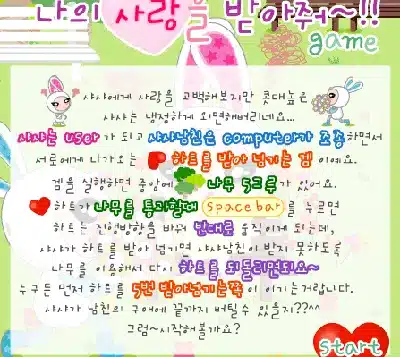 나의 사랑을 받아줘~!!
game
샤샤에게 사랑을 고백해보지만 콧대높은
샤샤는 냉정하게 외면해버리네요...
샤샤는 user가 되고 샤샤남친은 computer가 조종하면서
서로에게 다가오는 하트를 받아 넘기는 겜 이예요.
겜을 실행하면 중앙에 나무 5그루가 있어요.
하트가 나무를 통과할때 space bar를 누르면
하트는 진행방향을 바꿔 반대로 움직이게 되는데,
샤샤가 하트를 받아 넘기면 샤샤남친이 받지 못하도록
나무를 이용해서 다시 하트를 되돌리면되요~
누구든 먼저 하트를 5번 받아넘기는쪽이 이기는거랍니다.
샤샤가 남친의 구애에 끝까지 버틸수 있을지??^^
그럼~시작해볼까요?
start